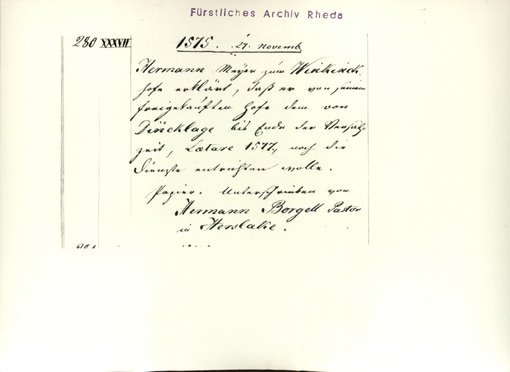 Fürstliches Archiv Rheda
280 XXXVII 1575. 27. Novemb
Hermann Meyer zum Winkinck
hofe erklärt, daß er von seinem
freigekauften Hofe dem von
Dincklage bis Ende der
zeit, Laetare 1577, noch die
Dienste entrichten wolle.
Papier. Unterschrieben von
Hermann Borgell Pastor
in Herslake.